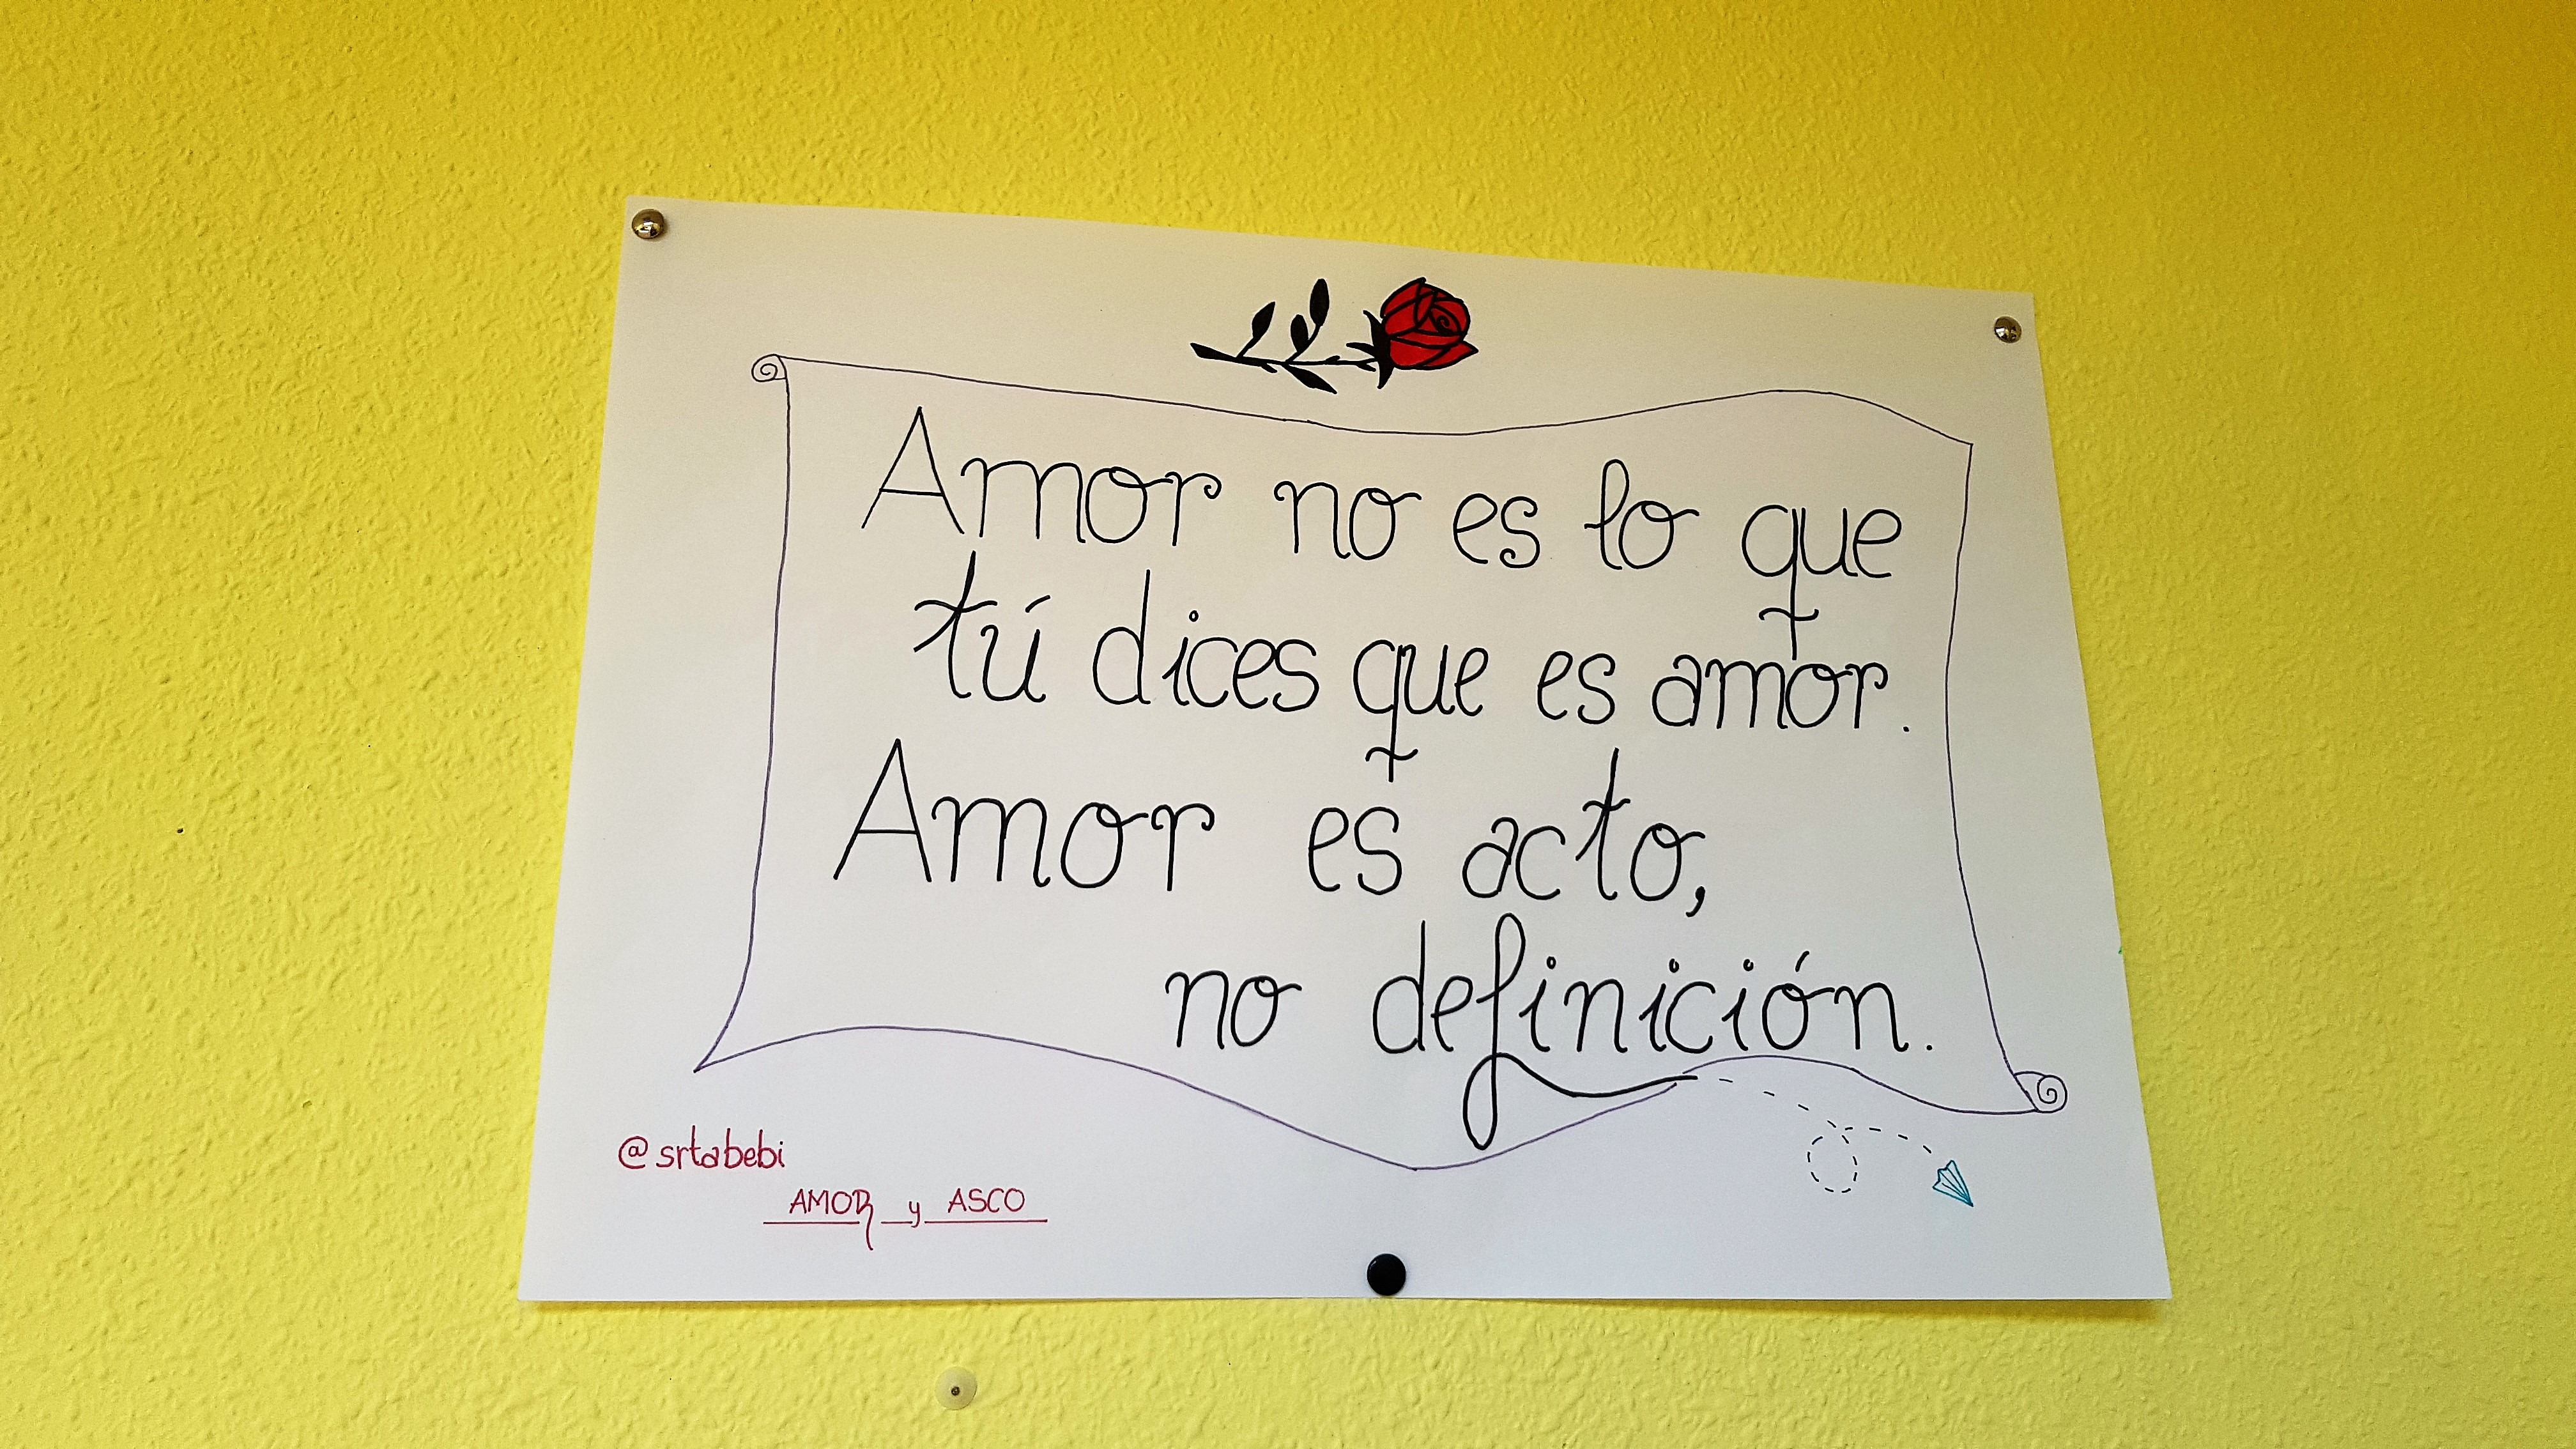 Amor no es lo que
tú dices que es amor.
Amor es acto,
no definición.
@srtabebi
AMOR y ASCO